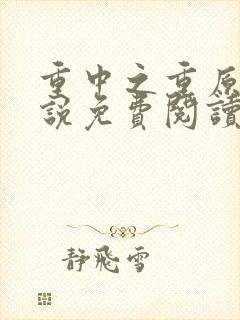 重中之重原
說免費閱讀
静飛雪